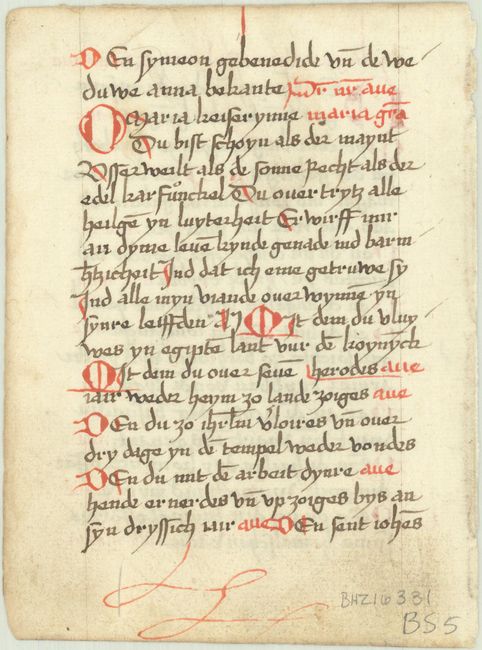 DEn symeon gebenedide vn̄ de we
duwe anna bekante pr̄ nr̄ aue
O Maria keiserynne maria gr̄a
Du bist schoyn als der maynt
Vsserweilt als de sonne Recht als der
edel karfůnckel Du ouertrytz alle
heilgē yn luyterheit Erwirff mir
an dyme leuē kynde genade ind barm
h̄tzicheit Ind dat ich eme getruwe sy
Ind alle myn viande ouerwynnē yn
synre leiffden MIt dem du vluy
wes yn egiptē lant vur dē koynyck
MIt dem du ouer seuē herodes aue
iair weder heym zo lande zoiges aue
DEn du zo ihrl̄m v̓loires vn̄ ouer
dry dage yn dē tempel weder vondes
DEn du mit dē arbeit dynre aue
hende ernerdes vn̄ vp zoiges bys an
syn dryssich iair aue DEn sent iohēs
BHZ16331
BS5